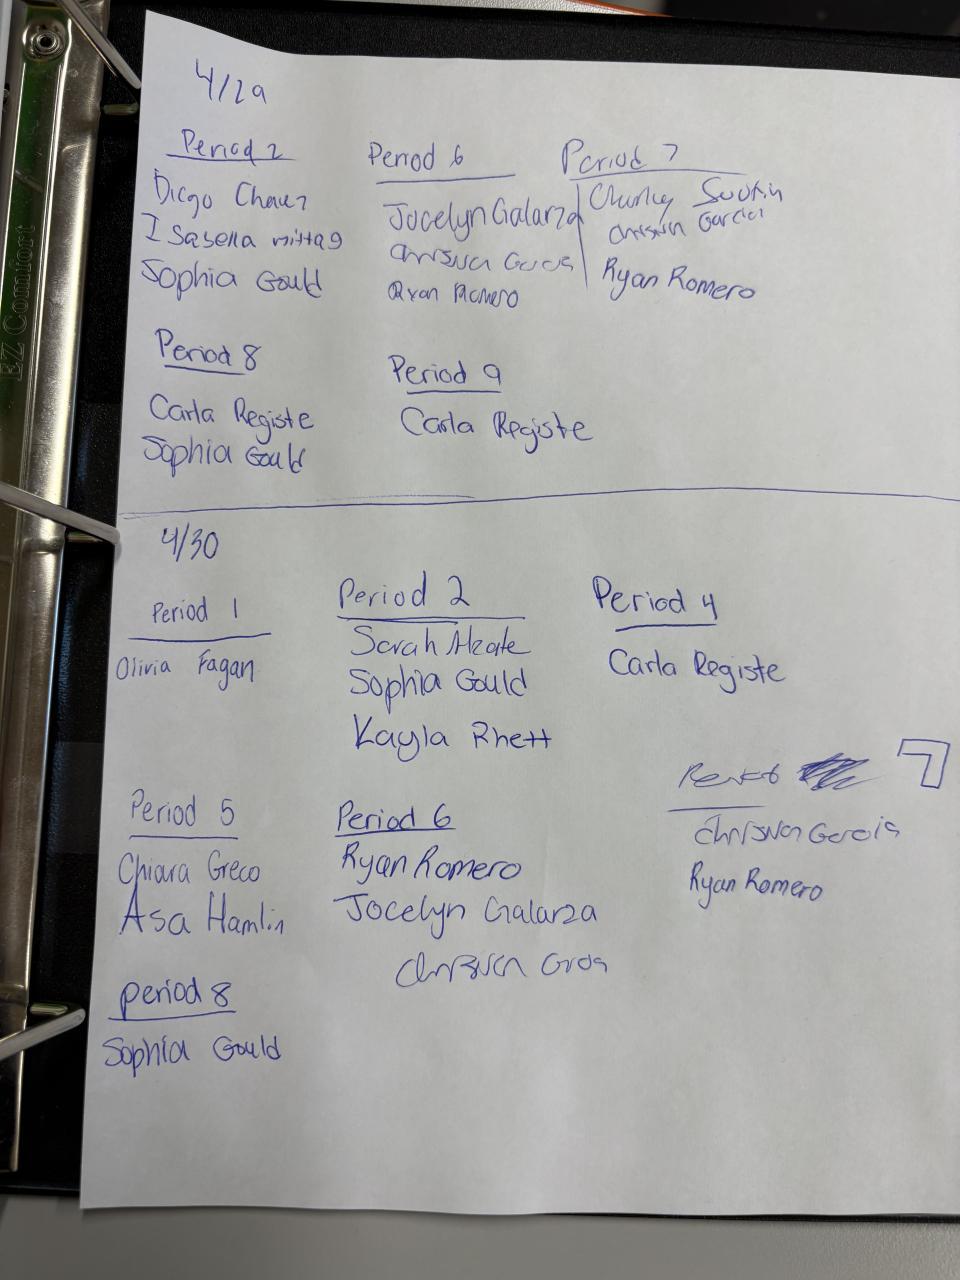 EZ Comfort
4/29
Period 2
Diego Chavez
Isabella mittag
Sophia Gould
Period 6
Jocelyn Galarza
Ryan Romero
Period 7
Garcia
Ryan Romero
Period 8
Carla Registe
Sophia Gould
Period 9
Carla Registe
4/30
Period 1
Olivia Fagan
Period 2
Sarah Alzate
Sophia Gould
Kayla Rhett
Period 4
Carla Registe
Period 5
Chiara Greco
Asa Hamlin
Period 6
Ryan Romero
Jocelyn Galarza
7
Garcia
Ryan Romero
period 8
Sophia Gould